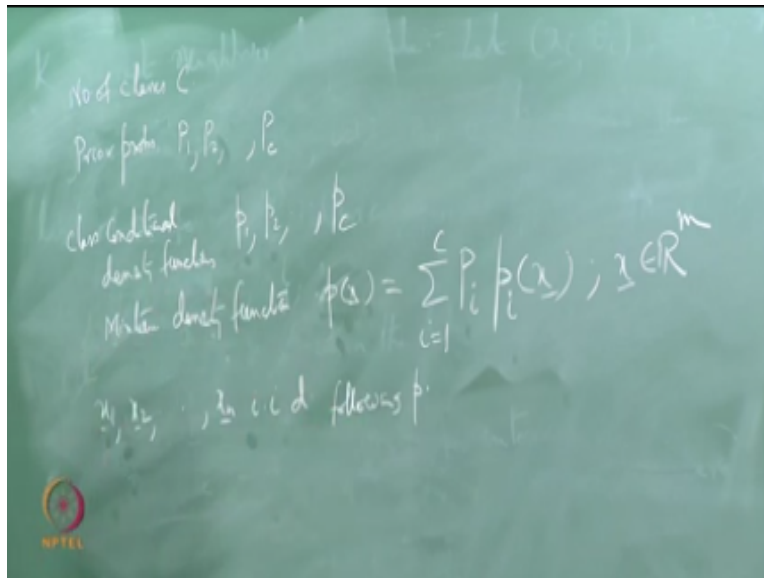 No of classes C
Prior prob. P₁, P₂, , P_c
Class Conditional p₁, p₂, , p_c
density functions
Mixture density function p(x) = \sum_{i=1}^{C} P_i p_i(x) ; x ∈ ℝ^m
x₁, x₂, . . , x_n i.i.d following p.
NPTEL